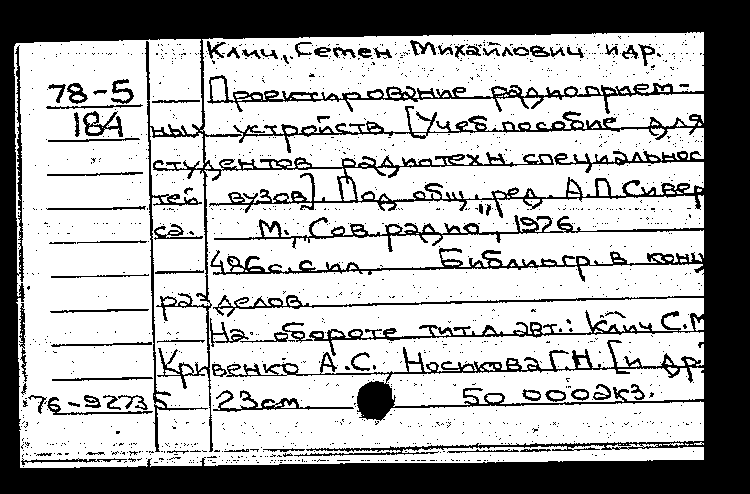 Клич, Семен Михайлович и др.
78-5 Проектирование радиоприем-
184 ных устройств. [Учеб. пособие для
студентов радиотехн. специальнос
тей вузов]. Под общ. ред. А.П. Сивер
са. М., "Сов. радио", 1976.
486с. с ил. Библиогр. в конц
разделов.
На обороте тит. л. авт.: Клич С.М
Кривенко А.С., Носикова Г.Н. [и др.
76-92735 23см. 50 000экз.